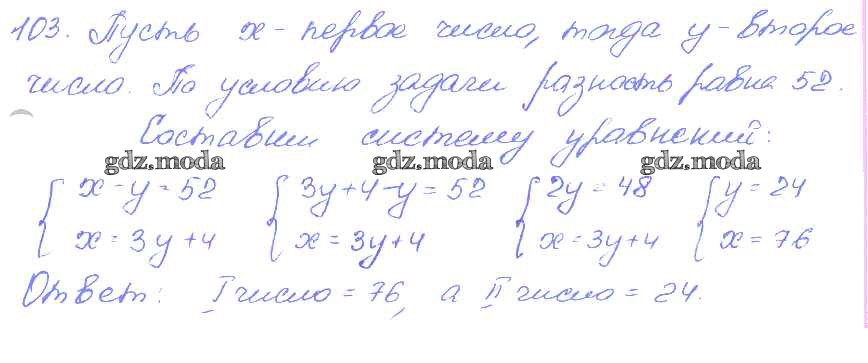 103. Пусть x - первое число, тогда y - второе
число. По условию задачи разность равна 52.
Составим систему уравнений:
gdz.moda gdz.moda gdz.moda
{ x - y = 52 { 3y + 4 - y = 52 { 2y = 48 { y = 24
x = 3y + 4 x = 3y + 4 x = 3y + 4 x = 76
Ответ: I число = 76, а II число = 24.